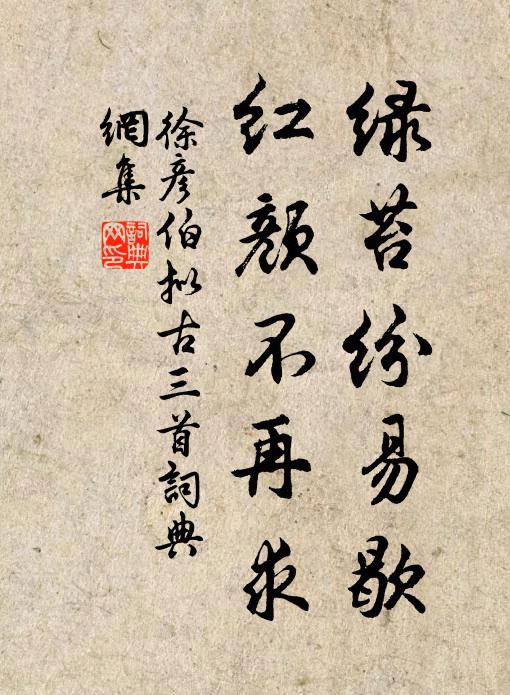 绿苔纷易歇
红颜不再求
徐彦伯拟古三首词典
網集
詞典
网印